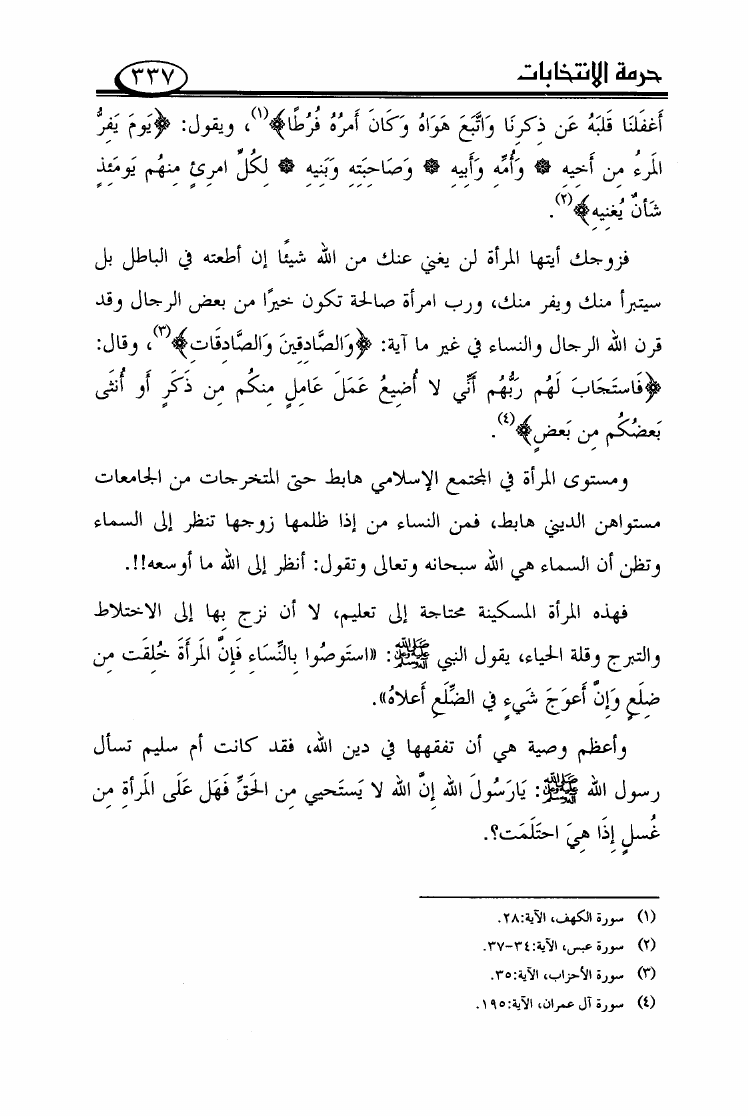 حرمة الانتخابات
٣٣٧
أَغفَلنَا قَلبَهُ عَن ذِكرِنَا وَاتَّبَعَ هَوَاهُ وَكَانَ أَمرُهُ فُرُطًا﴾(١)، ويقول: ﴿يَومَ يَفِرُّ
المَرءُ مِن أَخِيهِ ۞ وَأُمِّهِ وَأَبِيهِ ۞ وَصَاحِبَتِهِ وَبَنِيهِ ۞ لِكُلِّ امرِئٍ مِنهُم يَومَئِذٍ
شَأنٌ يُغنِيهِ﴾(٢).
فزوجك أيتها المرأة لن يغني عنك من الله شيئًا إن أطعته في الباطل بل
سيتبرأ منك ويفر منك، ورب امرأة صالحة تكون خيرًا من بعض الرجال وقد
قرن الله الرجال والنساء في غير ما آية: ﴿وَالصَّادِقِينَ وَالصَّادِقَاتِ﴾(٣)، وقال:
﴿فَاستَجَابَ لَهُم رَبُّهُم أَنِّي لا أُضِيعُ عَمَلَ عَامِلٍ مِنكُم مِن ذَكَرٍ أَو أُنثَى
بَعضُكُم مِن بَعضٍ﴾(٤).
ومستوى المرأة في المجتمع الإسلامي هابط حتى المتخرجات من الجامعات
مستواهن الديني هابط، فمن النساء من إذا ظلمها زوجها تنظر إلى السماء
وتظن أن السماء هي الله سبحانه وتعالى وتقول: أنظر إلى الله ما أوسعه!!.
فهذه المرأة المسكينة محتاجة إلى تعليم، لا أن نزج بِها إلى الاختلاط
والتبرج وقلة الحياء، يقول النبي ﷺ: «استَوصُوا بِالنِّسَاءِ فَإِنَّ المَرأَةَ خُلِقَت مِن
ضِلَعٍ وَإِنَّ أَعوَجَ شَيءٍ فِي الضِّلَعِ أَعلاهُ».
وأعظم وصية هي أن تفقهها في دين الله، فقد كانت أم سليم تسأل
رسول الله ﷺ: يَارَسُولَ الله إِنَّ الله لا يَستَحيي مِن الحَقِّ فَهَل عَلَى المَرأةِ مِن
غُسلٍ إِذَا هِيَ احتَلَمَت؟.
(١) سورة الكهف، الآية:٢٨.
(٢) سورة عبس، الآية:٣٤-٣٧.
(٣) سورة الأحزاب، الآية:٣٥.
(٤) سورة آل عمران، الآية:١٩٥.